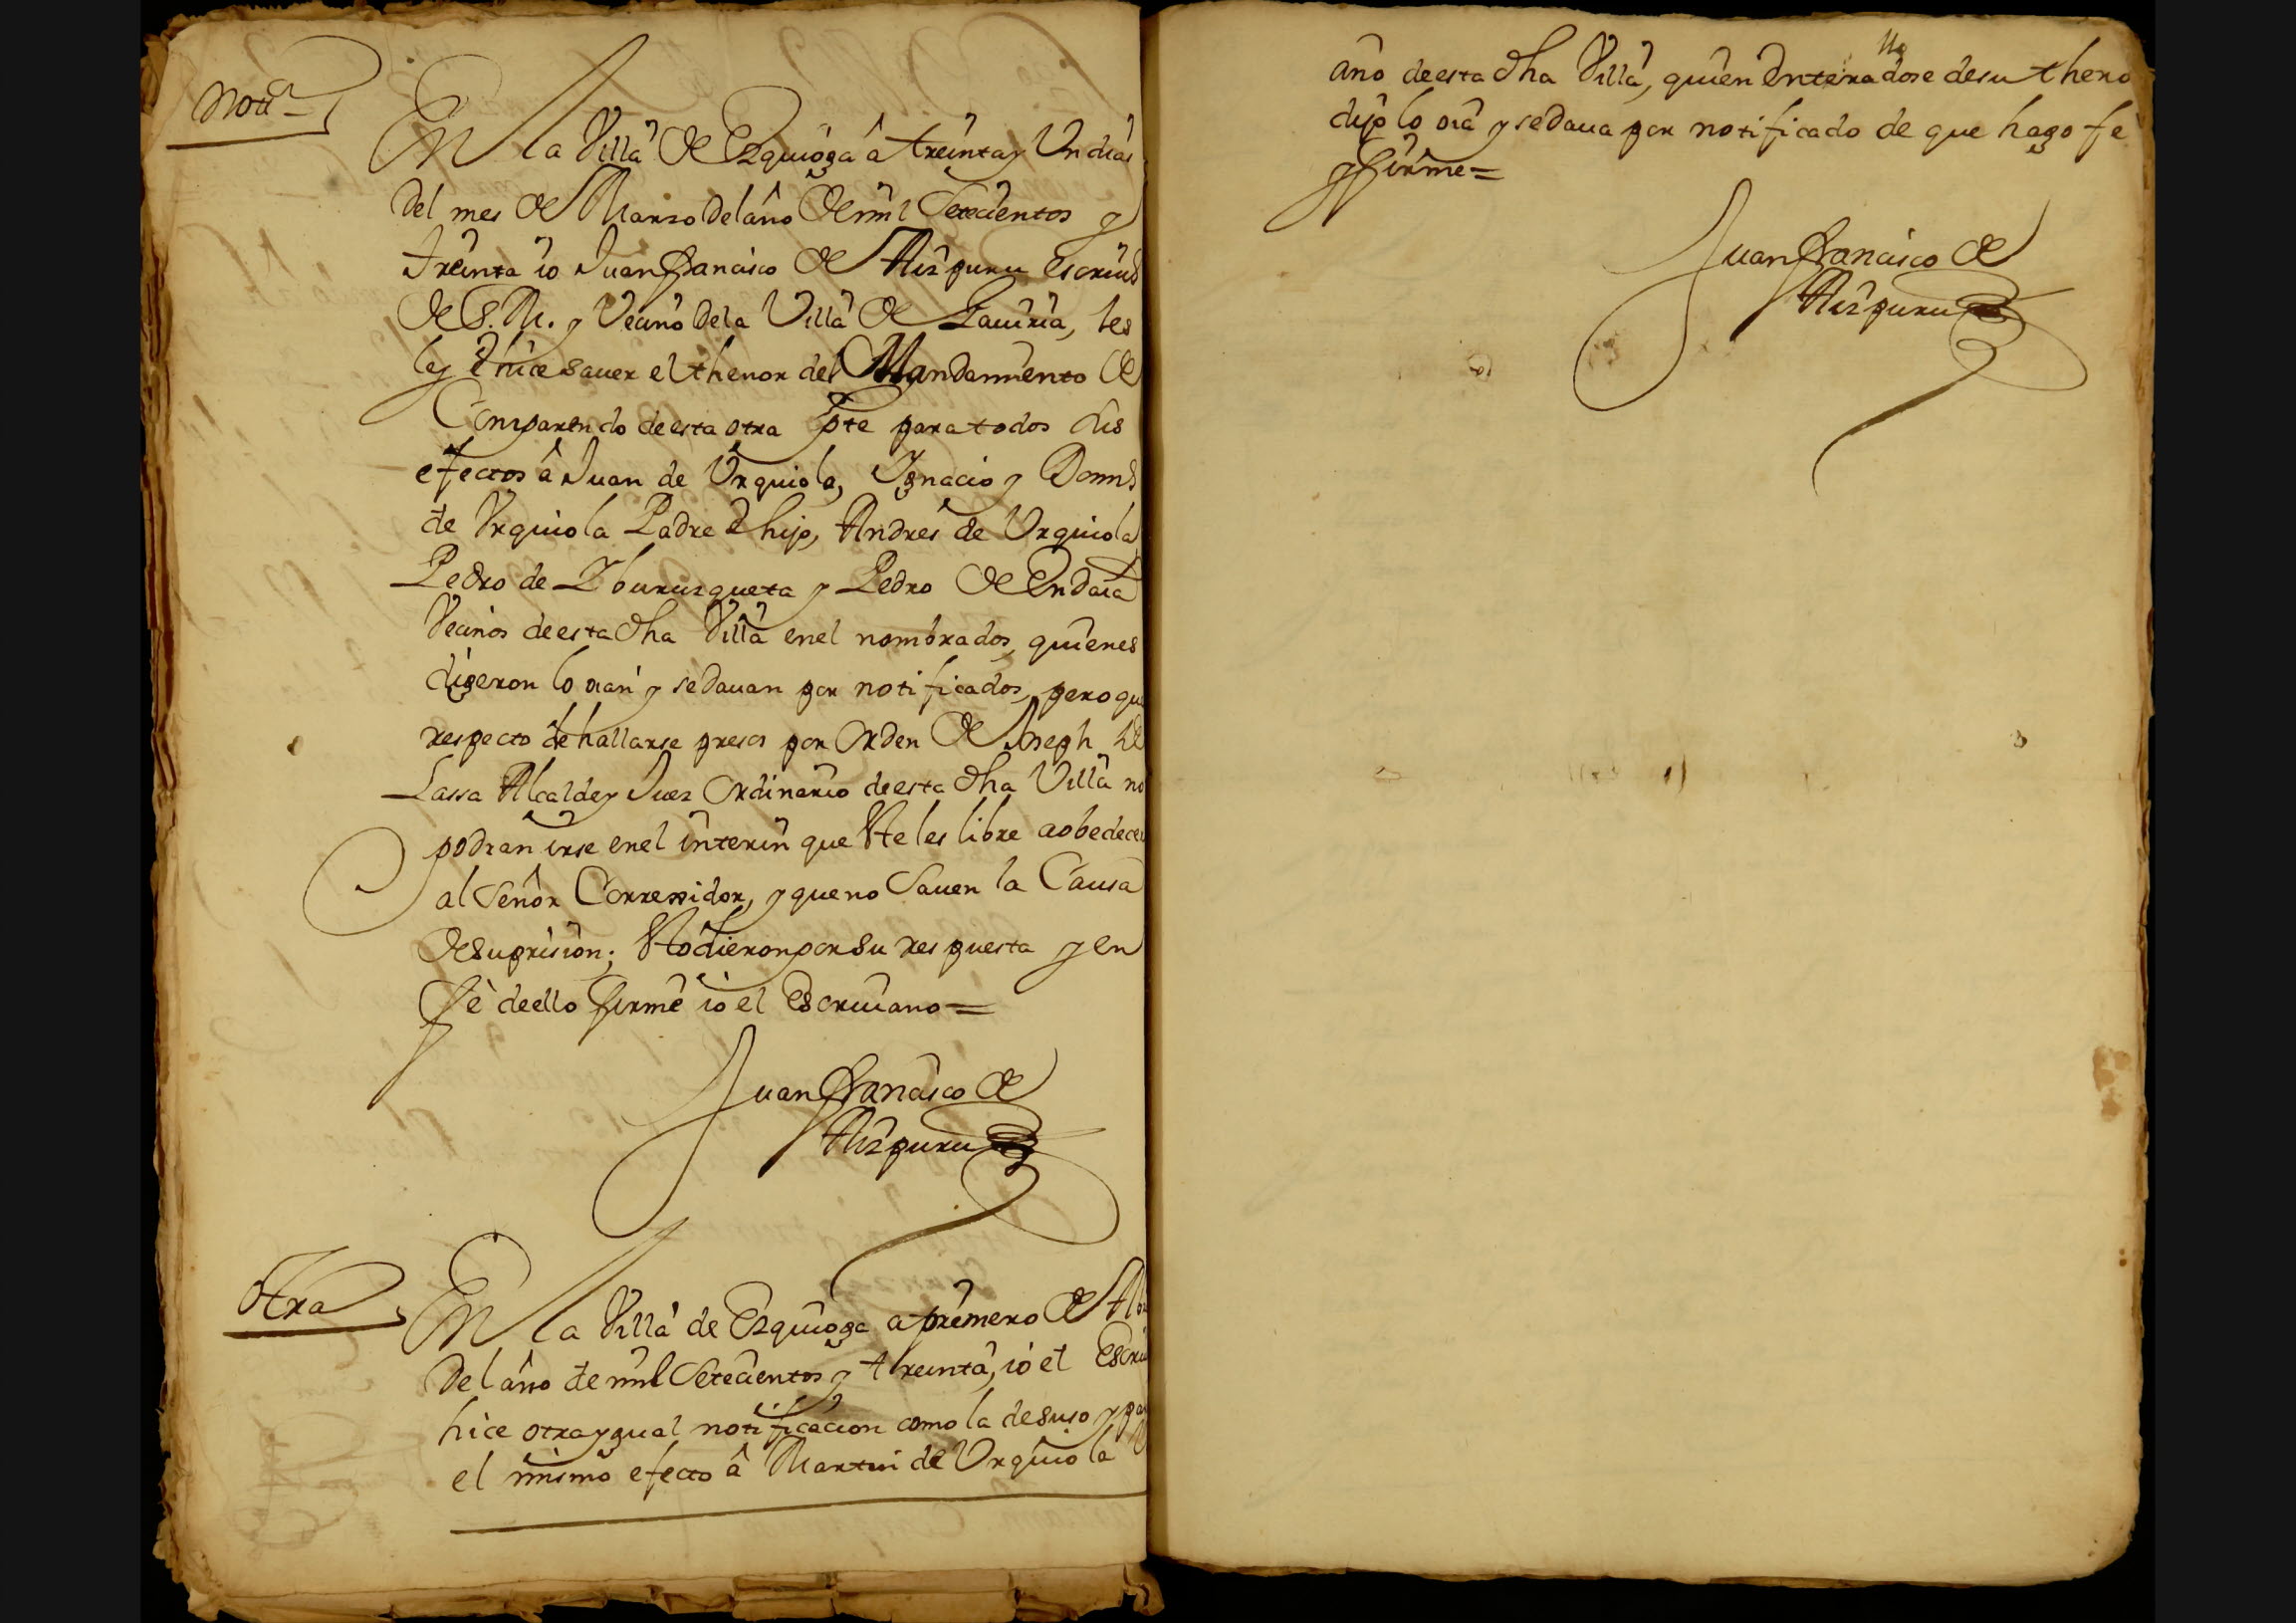 Notiᵃ
En la Villa de Ezquioga â treinta y Un dias
del mes de Marzo del año de mil Setecientos y
treinta io Juan francisco de Aizpuru escriuº
de S. M. y Vecino de la Villa de Gauiria, les
ley é hice sauer el thenor del Mandamiento de
Comparendo de esta otra pte para todos sus
efectos â Juan de Urquiola, Ygnacio y Domº
de Urquiola Padre é hijo, Andres de Urquiola
Pedro de Yburuzqueta y Pedro de Endaia
Vecinos de esta dha Villa en el nombrados, quienes
digeron lo oian y se dauan por notificados, pero que
respecto de hallarse presos por orden de Joseph de
Lassa Alcalde y Juez Ordinario de esta dha Villa no
podran irse en el interin que Se les libre a obedecer
al Señor Corressidor, y que no Sauen la Causa
de su prision; Esto dieron por su respuesta y en
fé de ello firmé io el Escriuano=
Juan francisco de
Aizpuru
Otra
En la Villa de Ezquioga a primero de Abr
del año de mil Setecientos y treinta, io el Escriu
hice otra ygual notificacion como la de suso y pa
el mismo efecto â Martin de Urquiola
ano de esta dha Villa, quien Enteradose de su theno
dijo lo oia y se daua por notificado de que hago fe
y firme=
Juan francisco de
Aizpuru